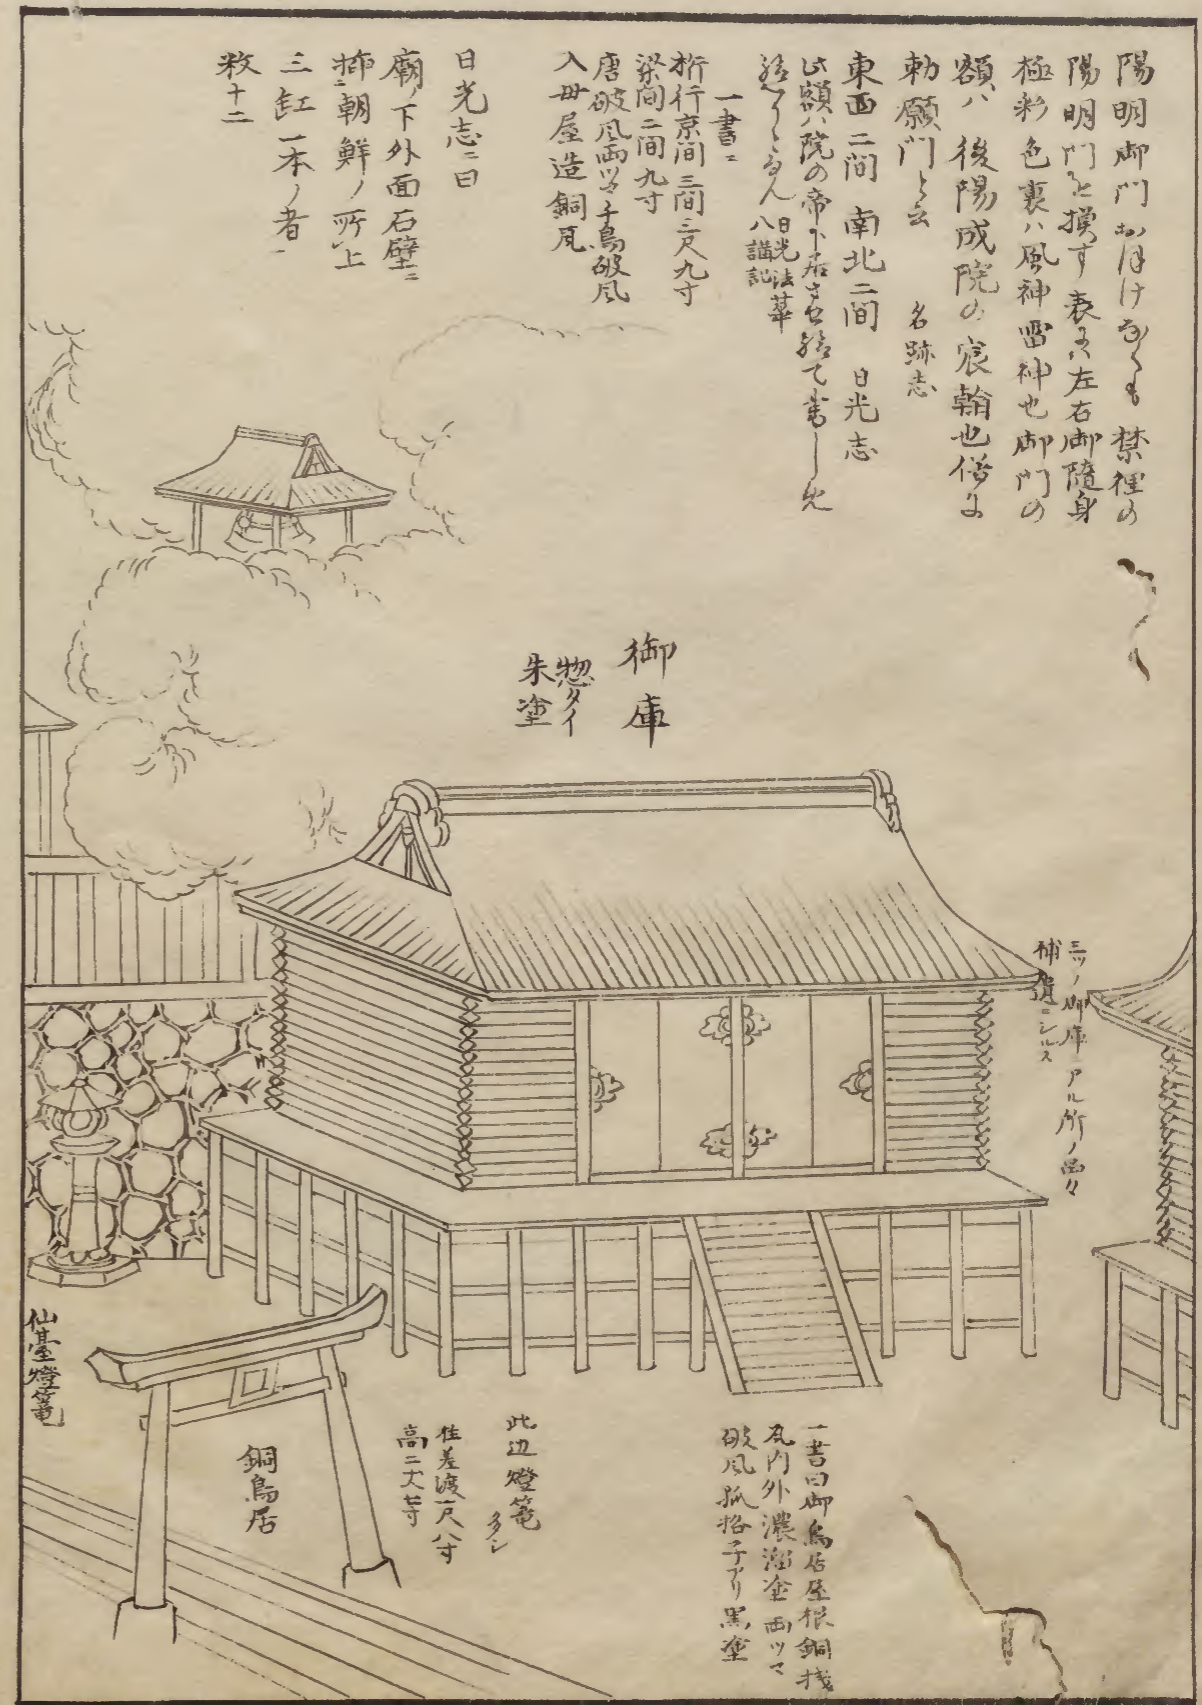 陽明御門おほけなくも禁裡の
陽明門を摸す表ハ左右御隨身
極彩色裏ハ風神雷神也御門の
額ハ後陽成院の宸翰也俗に
勅願門と云　名跡志
東西二間南北二間　日光志
此額ハ院の帝下居させ給て
日光法華
八講記
一書ニ
桁行京間三間三尺九寸
梁間二間九寸
唐破風両ツマ千鳥破風
入母屋造銅瓦
日光志ニ曰
廟ノ下外面石壁ニ
挿ニ朝鮮ノ所上
三缸一本ノ者
枚十二
御庫
惣タイ
朱塗
三ツノ御庫ニアル所ノ品々
補遺ニシルス
仙臺燈篭
銅鳥居
此辺燈篭
タタシ
柱差渡一尺八寸
高二丈七寸
一書曰御鳥居屋根銅
瓦内外濃塗両ツマ
破風狐格子アリ黒塗